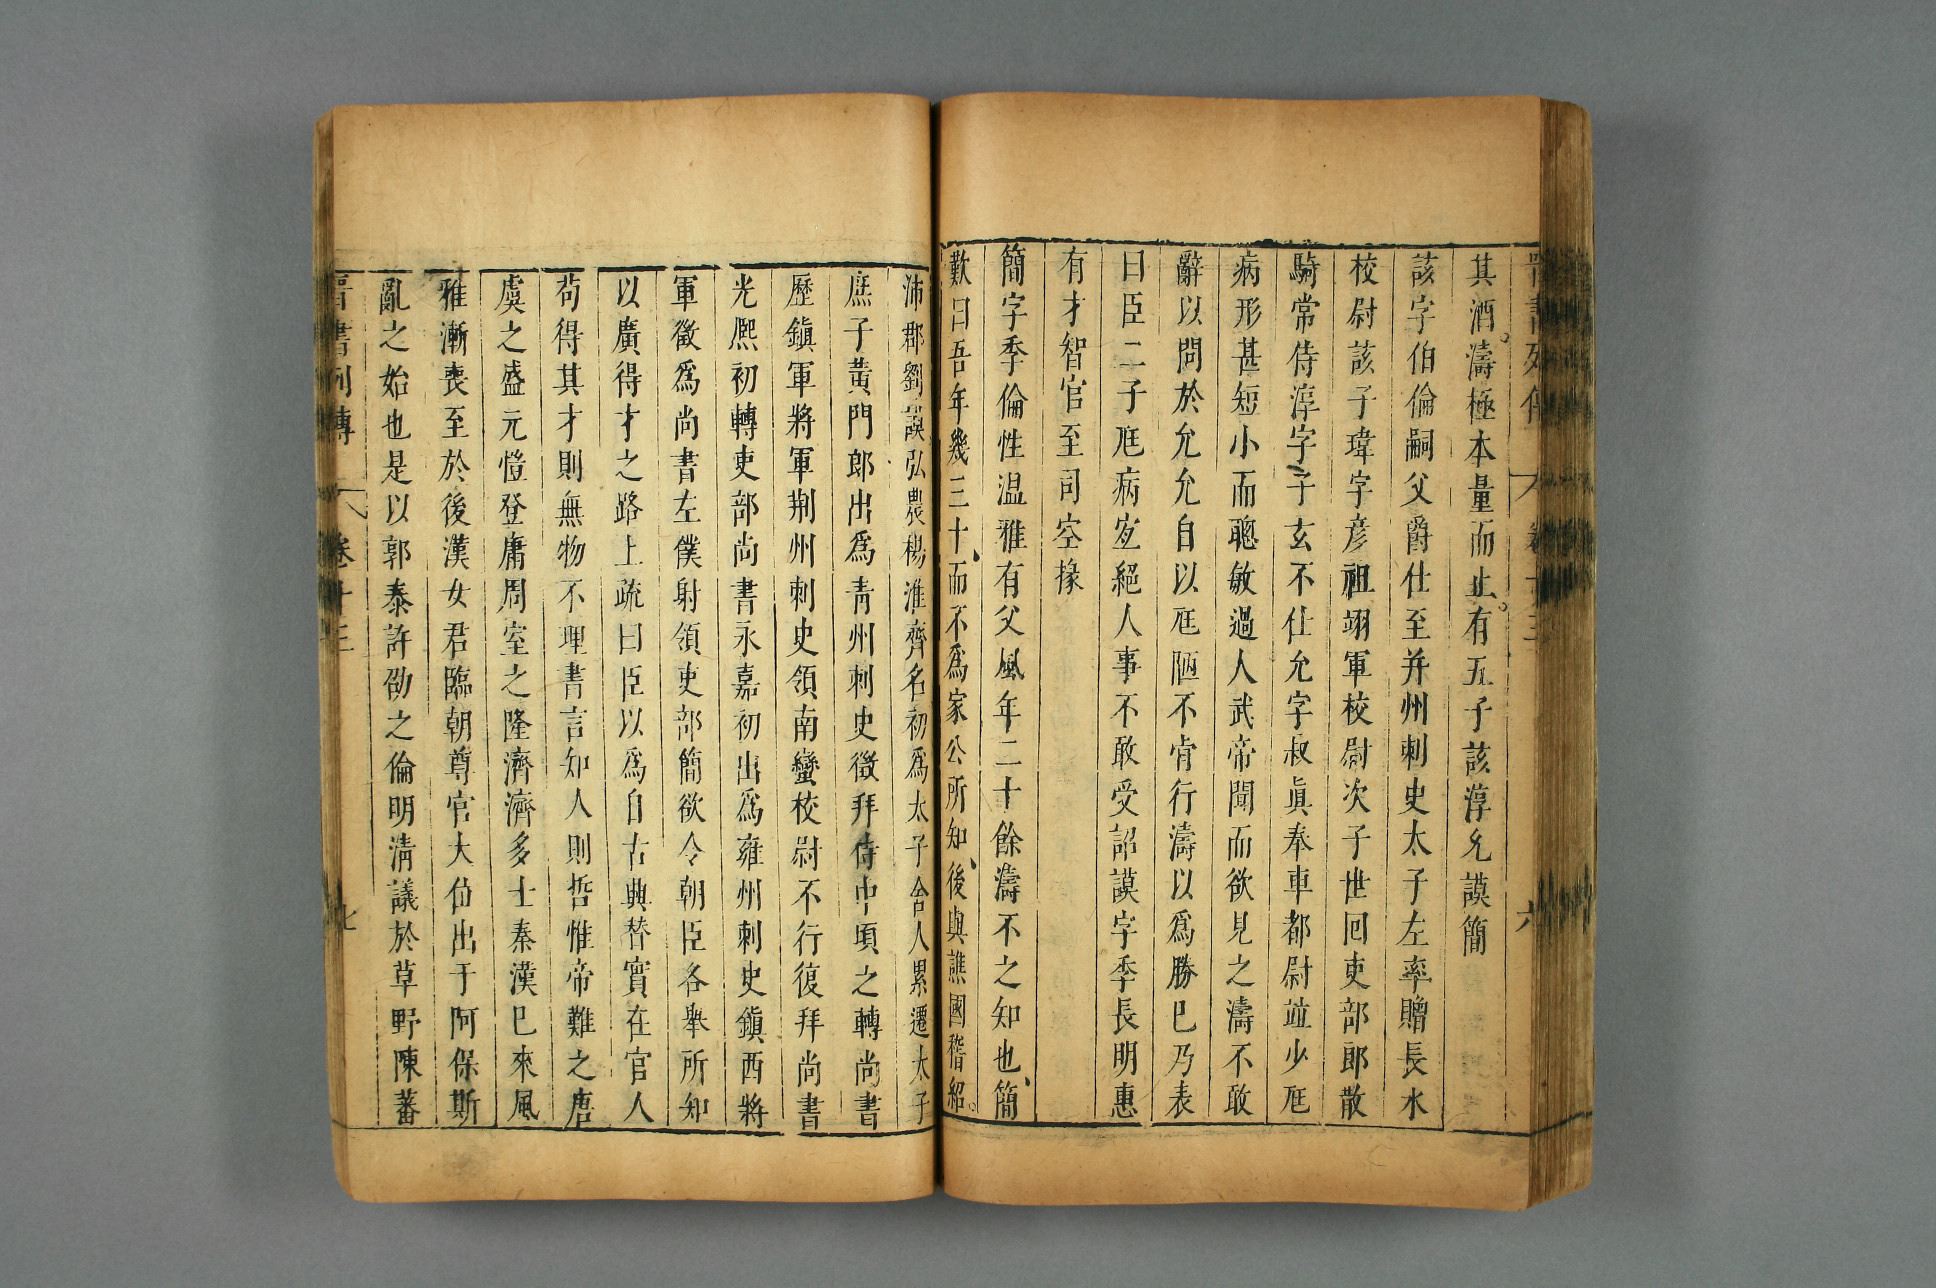 晉書列傳 卷十三 六
其酒濤極本量而止有五子該淳允謨簡
該字伯倫嗣父爵仕至并州刺史太子左率贈長水
校尉該子瑋字彦祖翊軍校尉次子世回吏部郎散
騎常侍淳字子玄不仕允字叔眞奉車都尉竝少尫
病形甚短小而聰敏過人武帝聞而欲見之濤不敢
辭以問於允允自以尫陋不肯行濤以爲勝已乃表
曰臣二子尫病宜絕人事不敢受詔謨字季長明惠
有才智官至司空掾
簡字季倫性温雅有父風年二十餘濤不之知也簡
歎曰吾年幾三十而不爲家公所知後與譙國嵇紹
沛郡劉謨弘農楊淮齊名初爲太子舍人累遷太子
庶子黃門郎出爲青州刺史徵拜侍中頃之轉尚書
歷鎮軍將軍荆州刺史領南蠻校尉不行復拜尚書
光熈初轉吏部尚書永嘉初出爲雍州刺史鎮西將
軍徵爲尚書左僕射領吏部簡欲令朝臣各舉所知
以廣得才之路上疏曰臣以爲自古興替實在官人
苟得其才則無物不理書言知人則哲惟帝難之唐
虞之盛元愷登庸周室之隆濟濟多士秦漢已來風
雅漸喪至於後漢女君臨朝尊官大位出于阿保斯
亂之始也是以郭泰許劭之倫明清議於草野陳蕃
晉書列傳 卷十三 七